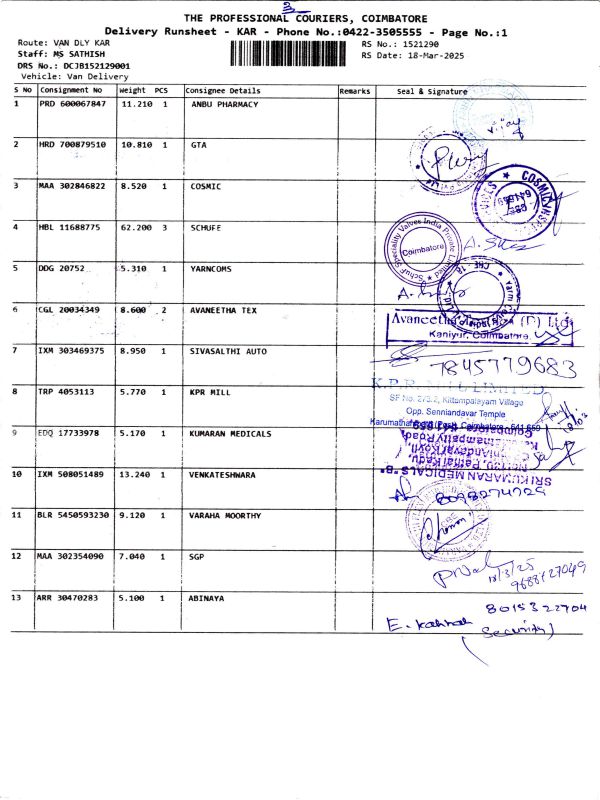 2
THE PROFESSIONAL COURIERS, COIMBATORE
Delivery Runsheet - KAR - Phone No.:0422-3505555 - Page No.:1
Route: VAN DLY KAR
Staff: MS SATHISH
DRS No.: DCJB152129001
Vehicle: Van Delivery
RS No.: 1521290
RS Date: 18-Mar-2025
S No Consignment No Weight PCS Consignee Details Remarks Seal & Signature
1 PRD 600067847 11.210 1 ANBU PHARMACY
2 HRD 700879510 10.810 1 GTA
3 MAA 302846822 8.520 1 COSMIC
COSMIC
641659
4 HBL 11688775 62.200 3 SCHUFE
Schuf Speciality Valves India Private Limited
Coimbatore
5 DDG 20752 5.310 1 YARNCOMS
CHE - 18
6 CGL 20034349 8.600 2 AVANEETHA TEX
Avaneetha (P) Ltd
Kaniyur, Coimbatore.
7 IXM 303469375 8.950 1 SIVASALTHI AUTO
7845779683
8 TRP 4053113 5.770 1 KPR MILL
K.P.R. MILL LIMITED
SF No. 273.2, Kittampalayam Village
Opp. Senniandavar Temple
Coimbatore - 641 659
9 EDQ 17733978 5.170 1 KUMARAN MEDICALS
SRI KUMARAN MEDICALS-B-
10 IXM 508051489 13.240 1 VENKATESHWARA
8098274729
11 BLR 5450593230 9.120 1 VARAHA MOORTHY
12 MAA 302354090 7.040 1 SGP
18/3/25
13 ARR 30470283 5.100 1 ABINAYA
8015322704
(Security)